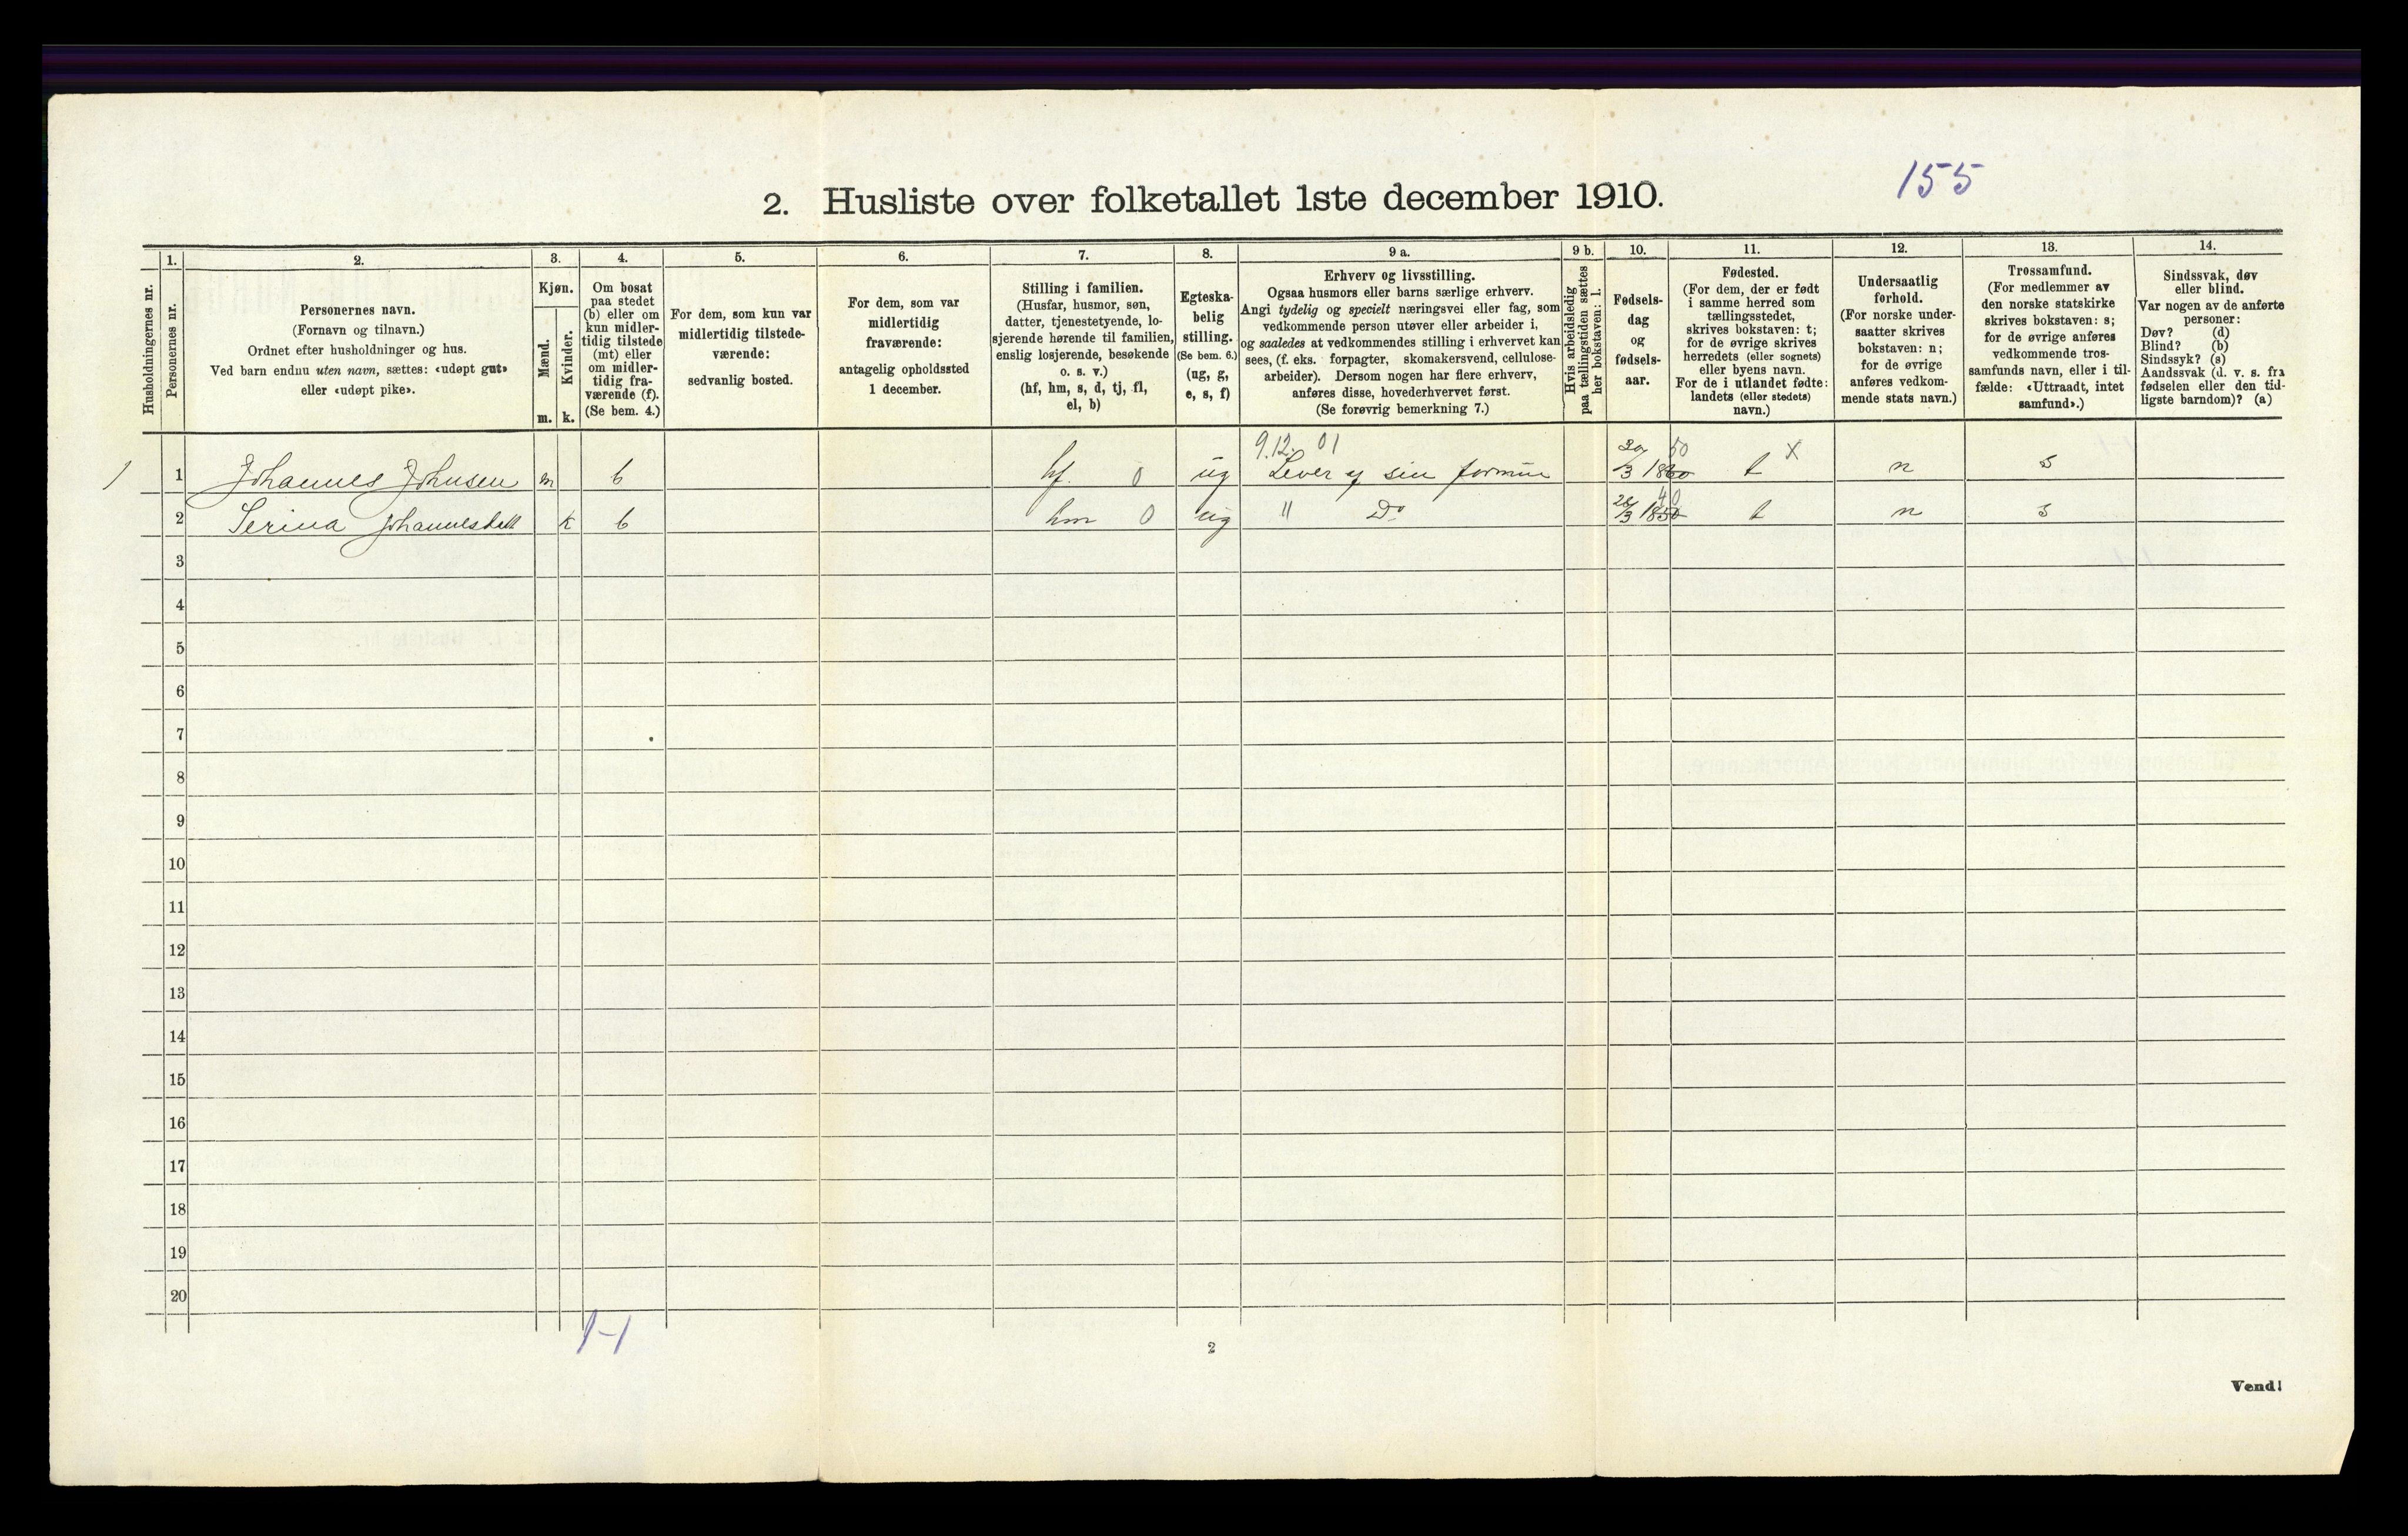 155
2. Husliste over folketallet 1ste december 1910.
Husholdningernes nr.
1.
Personernes nr.
2.
Personernes navn.
(Fornavn og tilnavn.)
Ordnet efter husholdninger og hus.
Ved barn endnu uten navn, sættes: «udøpt gut»
eller «udøpt pike».
3.
Kjøn.
Mænd.
m.
Kvinder.
k.
4.
Om bosat
paa stedet
(b) eller om
kun midler-
tidig tilstede
(mt) eller
om midler-
tidig fra-
værende (f).
(Se bem. 4.)
5.
For dem, som kun var
midlertidig tilstede-
værende:
sedvanlig bosted.
6.
For dem, som var
midlertidig
fraværende:
antagelig opholdssted
1 december.
7.
Stilling i familien.
(Husfar, husmor, søn,
datter, tjenestetyende, lo-
sjerende hørende til familien,
enslig losjerende, besøkende
o. s. v.)
(hf, hm, s, d, tj, fl,
el, b)
8.
Egteska-
belig
stilling.
(Se bem. 6.)
(ug, g,
e, s, f)
9 a.
Erhverv og livsstilling.
Ogsaa husmors eller barns særlige erhverv.
Angi tydelig og specielt næringsvei eller fag, som
vedkommende person utøver eller arbeider i,
og saaledes at vedkommendes stilling i erhvervet kan
sees, (f. eks. forpagter, skomakersvend, cellulose-
arbeider). Dersom nogen har flere erhverv,
anføres disse, hovederhvervet først.
(Se forøvrig bemerkning 7.)
9 b.
Hvis arbeidsledig
paa tællingstiden sættes
her bokstaven: l.
10.
Fødsels-
dag
og
fødsels-
aar.
11.
Fødested.
(For dem, der er født
i samme herred som
tællingsstedet,
skrives bokstaven: t;
for de øvrige skrives
herredets (eller sognets)
eller byens navn.
For de i utlandet fødte:
landets (eller stedets)
navn.)
12.
Undersaatlig
forhold.
(For norske under-
saatter skrives
bokstaven: n;
for de øvrige
anføres vedkom-
mende stats navn.)
13.
Trossamfund.
(For medlemmer av
den norske statskirke
skrives bokstaven: s;
for de øvrige anføres
vedkommende tros-
samfunds navn, eller i til-
fælde: «Uttraadt, intet
samfund».)
14.
Sindssvak, døv
eller blind.
Var nogen av de anførte
personer:
Døv? (d)
Blind? (b)
Sindssyk? (s)
Aandssvak (d. v. s. fra
fødselen eller den tid-
ligste barndom)? (a)
9.12 01
1 1 Johannes Johnsen m b hf. 0 ug Lever af sin formue 30/3 1860 50 t X n s
2 Serina Johannesdatt k b hm 0 ug " Do 28/3 1850 40 t n s
3
4
5
6
7
8
9
10
11
12
13
14
15
16
17
18
19
20
1-1
2
Vend!